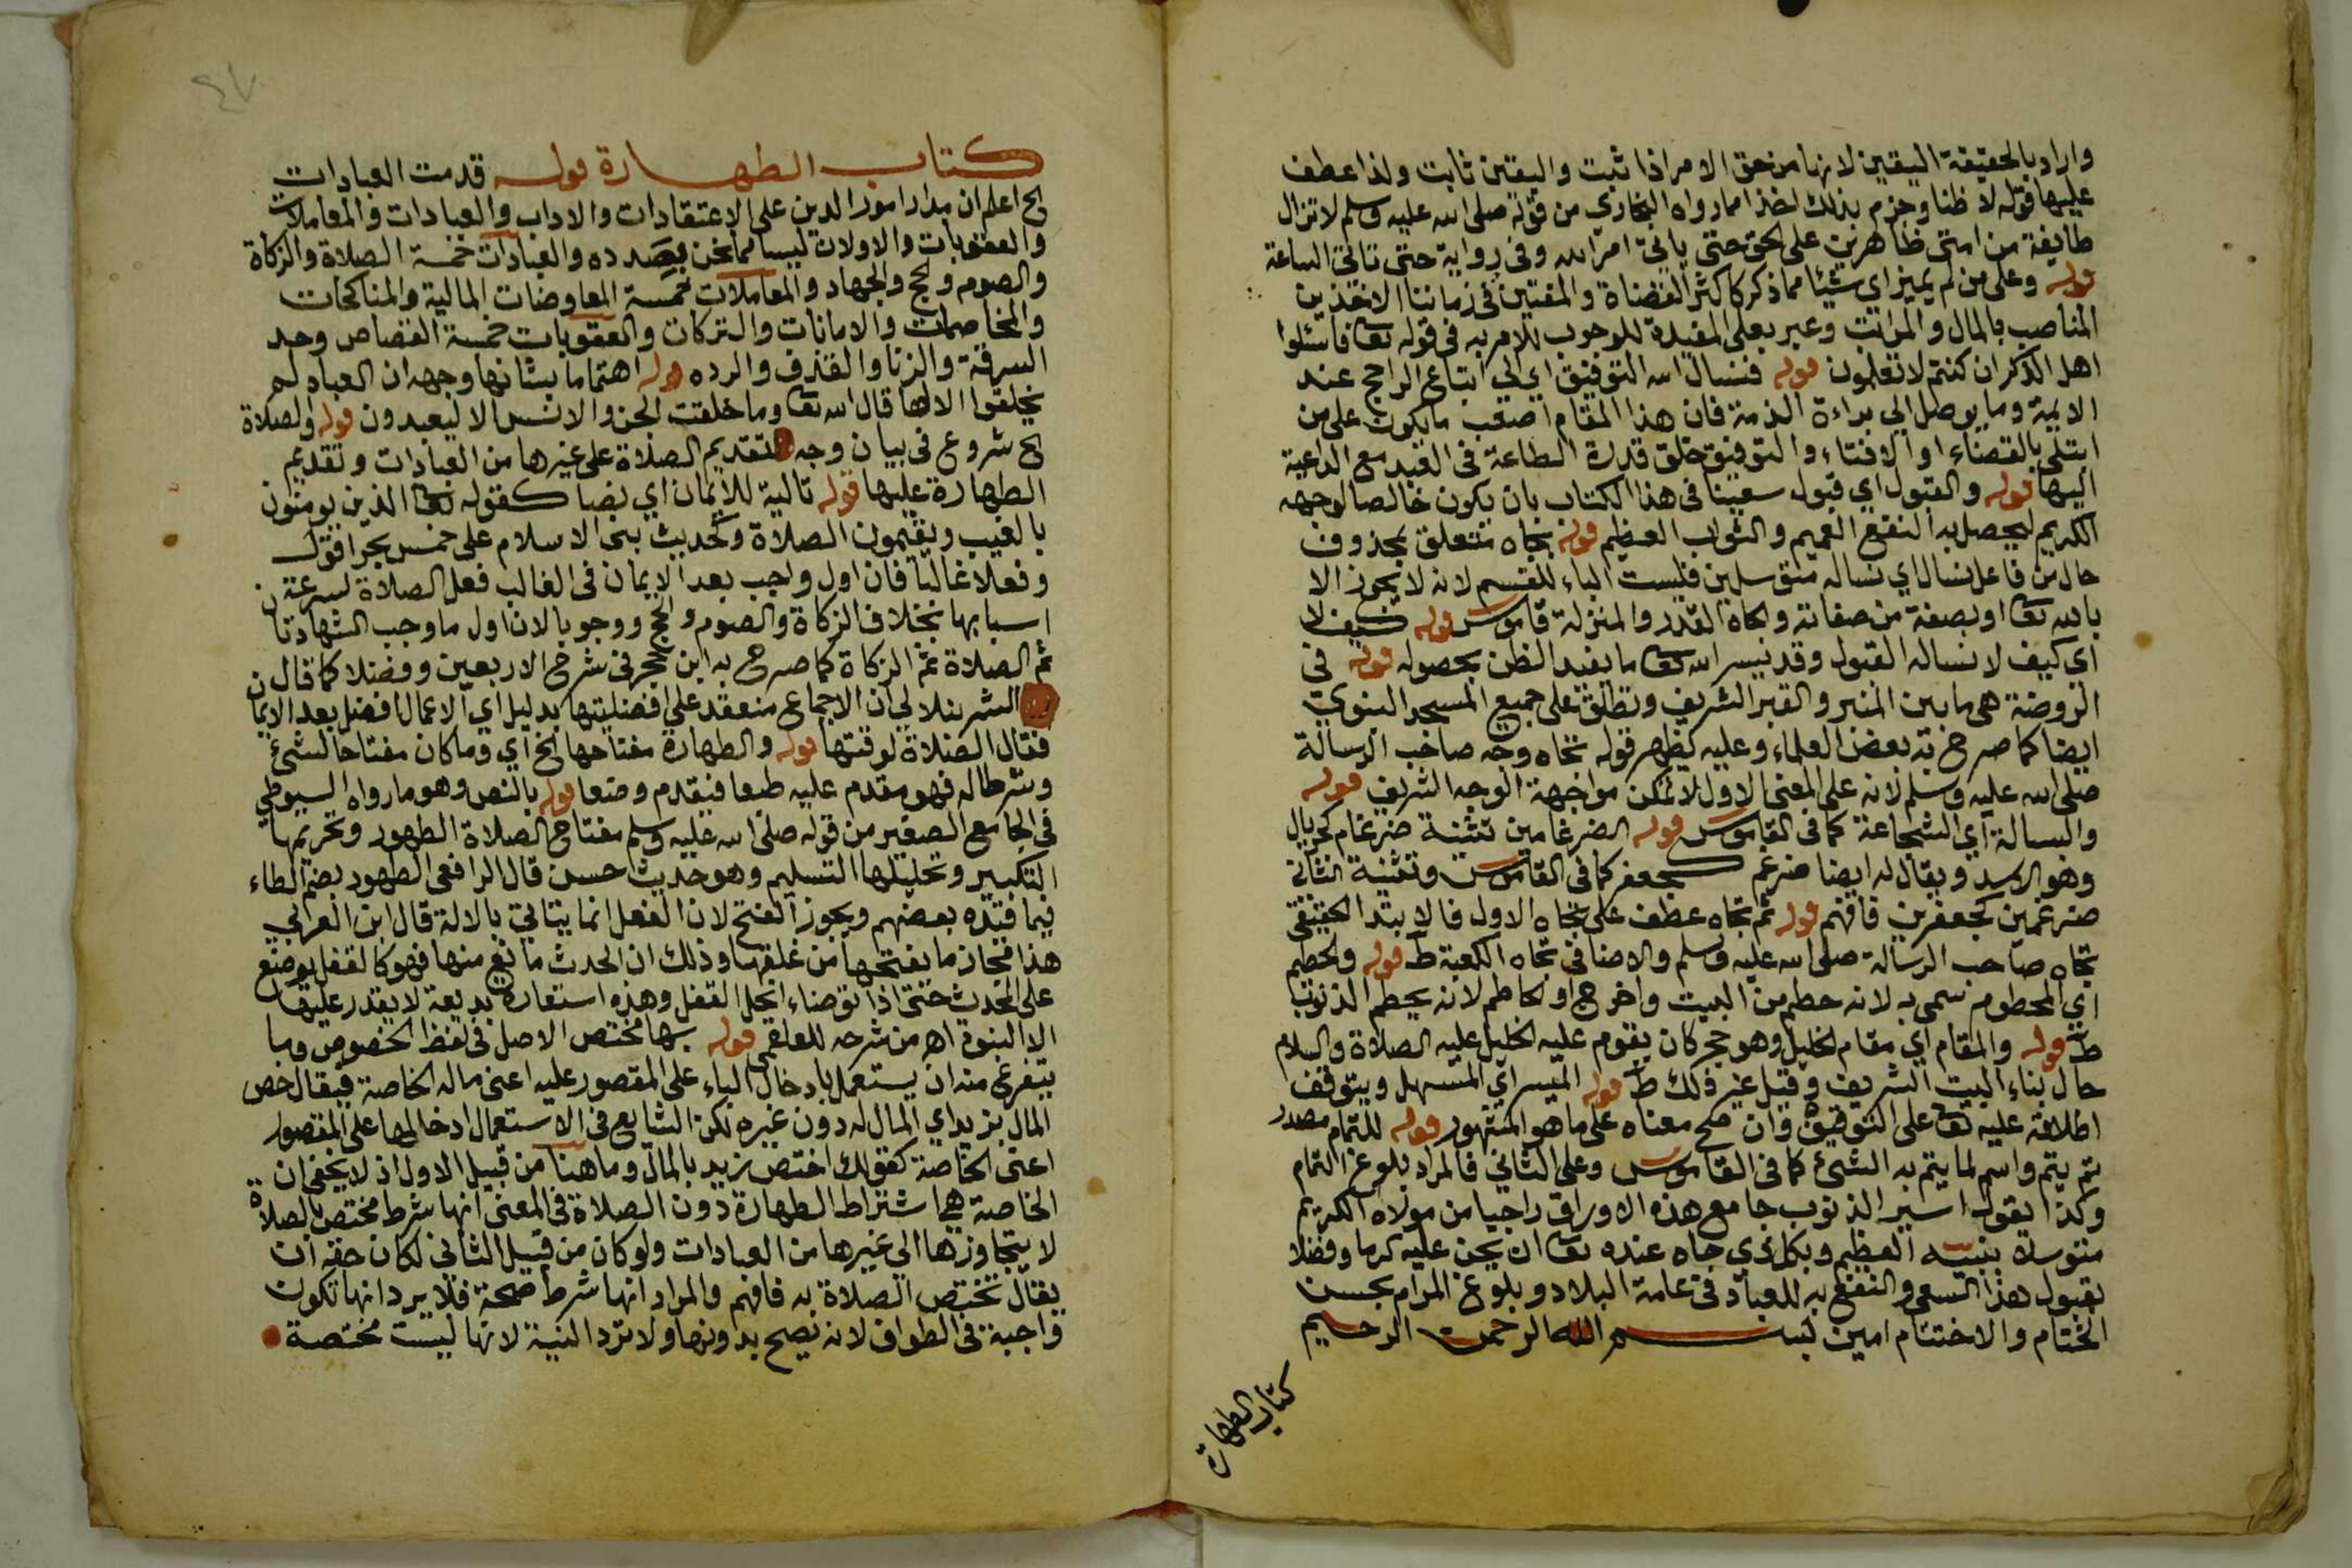 واراد بالحقيقة اليقين لانها من حق الامر اذا ثبت واليقين ثابت ولذا عطف
عليها قوله لا ظنا وجزم بذلك اخذا مما رواه البخاري من قوله صلى الله عليه وسلم لا تزال
طايفة من امتي ظاهرين على الحق حتى ياتي امر الله وفي رواية حتى تاتي الساعة
قوله وعلى من لم يميز اي شيئا مما ذكر كاكثر القضاة والمفتين في زماننا الاخذين
المناصب بالمال والمراتب وعبر بعلى المفيدة للوجوب للامر به في قوله تعا فاسئلوا
اهل الذكر ان كنتم لا تعلمون قوله فنسال الله التوفيق اي الى اتباع الراجح عند
الايمة وما يوصل الى براءة الذمة فان هذا المقام اصعب ما يكون على من
ابتلى بالقضاء او الافتاء والتوفيق خلق قدرة الطاعة في العبد مع الداعية
اليها قوله والقبول اي قبول سعينا في هذا الكتاب بان يكون خالصا لوجهه
الكريم ليحصل به النفع العميم والثواب العظيم قوله بجاه متعلق بمحذوف
حال من فاعل نسال اي نساله متوسلين فليست الباء للقسم لانه لا يجوز الا
بالله تعا او بصفة من صفاته والجاه القدر والمنزلة قاموس قوله كيف لا
اي كيف لا نساله القبول وقد يسر الله تعا ما يفيد الظن بحصوله قوله في
الروضة هي ما بين المنبر والقبر الشريف وتطلق على جميع المسجد النبوي
ايضا كما صرح به بعض العلماء وعليه يظهر قوله تجاه وجه صاحب الرسالة
صلى الله عليه وسلم لانه على المعنى الاول لا تمكن مواجهة الوجه الشريف قوله
والبسالة اي الشجاعة كما في القاموس قوله الضرغامين تثنية ضرغام كجريال
وهو الاسد ويقال له ايضا ضرغم كجعفر كما في القاموس وتثنية الثاني
ضرغمين كجعفرين فافهم قوله ثم تجاه عطف على تجاه الاول فالابتدا الحقيقي
تجاه صاحب الرسالة صلى الله عليه وسلم والاضافي تجاه الكعبة ط قوله والحطيم
اي المحطوم سمي به لانه حطم من البيت واخرج او الحاطم لانه يحطم الذنوب
ط قوله والمقام اي مقام الخليل وهو حجر كان يقوم عليه الخليل عليه الصلاة والسلام
حال بناء البيت الشريف وقيل غير ذلك ط قوله الميسر اي المسهل ويتوقف
اطلاقه عليه تعا على التوقيف وان صح معناه على ما هو المشهور قوله للتمام مصدر
تم يتم واسم لما يتم به الشئ كما في القاموس وعلى الثاني فالمراد بلوغ التمام
وكذا يقول اسير الذنوب جامع هذه الاوراق راجيا من مولاه الكريم
متوسلا بنبيه العظيم وبكل ذي جاه عنده تعا ان يمن عليه كرما وفضلا
بقبول هذا السعي والنفع به للعباد في عامة البلاد وبلوغ المرام بحسن
الختام والاختتام امين بسم الله الرحمن الرحيم
كتاب الطهارة
٤٧
كتاب الطهارة قوله قدمت العبادات
الخ اعلم ان مدار امور الدين على الاعتقادات والاداب والعبادات والمعاملات
والعقوبات والاولان ليسا مما نحن بصدده والعبادات خمسة الصلاة والزكاة
والصوم والحج والجهاد والمعاملات خمسة المعاوضات المالية والمناكحات
والمخاصمات والامانات والتركات والعقوبات خمسة القصاص وحد
السرقة والزنا والقذف والرده قوله اهتماما بشانها وجهه ان العباد لم
يخلقوا الا لها قال الله تعا وما خلقت الجن والانس الا ليعبدون قوله والصلاة
الخ شروع في بيان وجه لتقديم الصلاة على غيرها من العبادات وتقديم
الطهارة عليها قوله تالية للايمان اي نصا كقوله تعا الذين يومنون
بالغيب ويقيمون الصلاة وكحديث بنى الاسلام على خمس بحر اقول
وفعلا غالبا فان اول واجب بعد الايمان في الغالب فعل الصلاة لسرعة
اسبابها بخلاف الزكاة والصوم والحج ووجوبا لان اول ما وجب الشهادتان
ثم الصلاة ثم الزكاة كما صرح به ابن حجر في شرح الاربعين وفضلا كما قال
الشرنبلالي ان الاجماع منعقد على افضليتها بدليل اي الاعمال افضل بعد الايمان
فقال الصلاة لوقتها قوله والطهارة مفتاحها الخ اي وما كان مفتاحا لشئ
وشرطا له فهو مقدم عليه طبعا فيقدم وضعا قوله بالنص وهو ما رواه السيوطي
في الجامع الصغير من قوله صلى الله عليه وسلم مفتاح الصلاة الطهور وتحريمها
التكبير وتحليلها التسليم وهو حديث حسن قال الرافعي الطهور بضم الطاء
فيما قيده بعضهم ويجوز الفتح لان الفعل انما يتاتى بالالة قال ابن العرابي
هذا مجاز ما يفتحها من غلقها وذلك ان الحدث مانع منها فهو كالقفل يوضع
على المحدث حتى اذا توضاء انحل القفل وهذه استعارة بديعة لا يقدر عليها
الا النبوة اهـ من شرحه للعلقمي قوله بها مختص الاصل في لفظ الخصوص وما
يتفرع منه ان يستعمل بادخال الباء على المقصور عليه اعني ماله الخاصة فيقال خص
المال بزيد اي المال له دون غيره لكن الشايع في الاستعمال ادخالها على المقصور
اعني الخاصة كقولك اختص زيد بالمال وما هنا من قبيل الاول اذ لا يخفى ان
الخاصة هي اشتراط الطهارة دون الصلاة في المعنى انها شرط مختص بالصلاة
لا يتجاوزها الى غيرها من العبادات ولو كان من قبيل الثاني لكان حقه ان
يقال تختص الصلاة به فافهم والمراد انها شرط صحة فلا يرد انها تكون
واجبة في الطواف لانه يصح بدونها ولا ترد النية لانها ليست مختصة